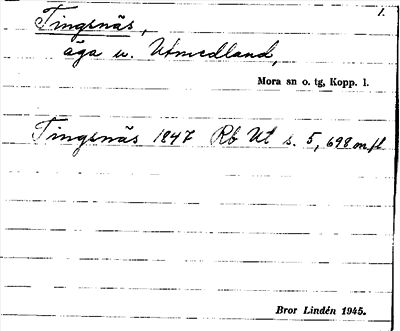 1.
Tingsnäs,
äga u. Utmedland,
Mora sn o. tg, Kopp. l.
Tingsnäs 1847 Rb Ut s. 5, 698 m fl
Bror Lindén 1945.